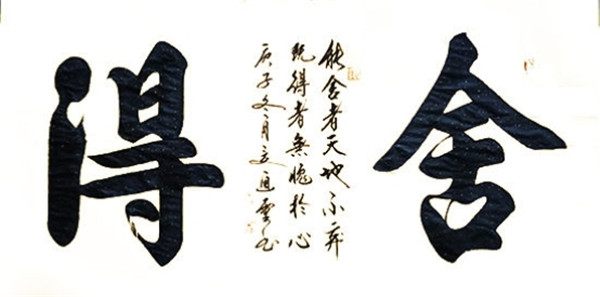 舍
能舍者天地不弃
既得者無愧於心
庚子冬月
得